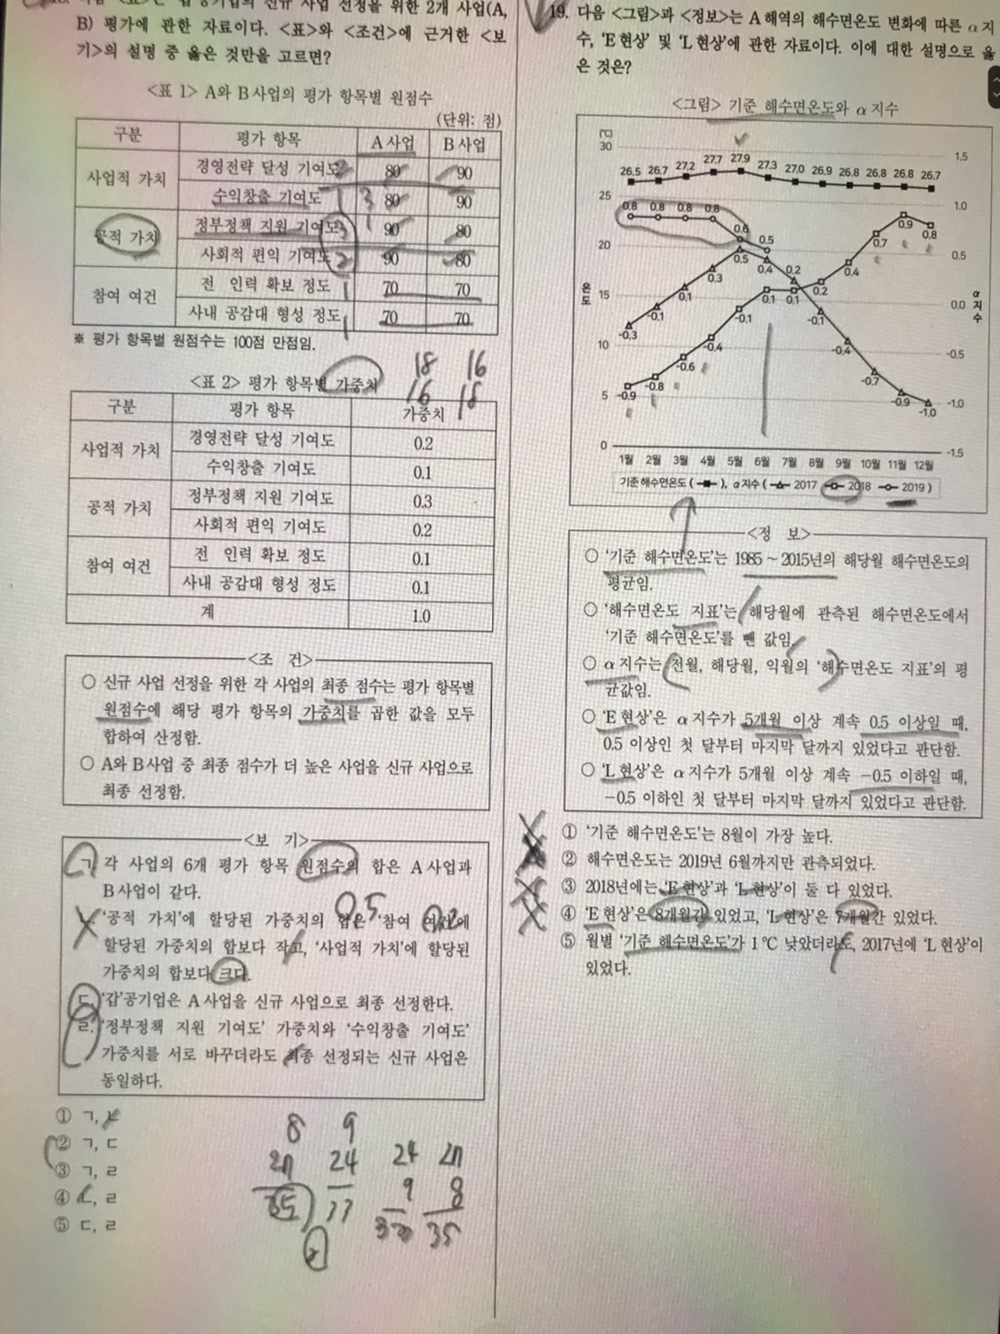 신규 사업 선정을 위한 2개 사업(A,
B) 평가에 관한 자료이다. <표>와 <조건>에 근거한 <보
기>의 설명 중 옳은 것만을 고르면?
<표 1> A와 B사업의 평가 항목별 원점수
(단위: 점)
구분 평가 항목 A사업 B사업
사업적 가치 경영전략 달성 기여도 80 90
수익창출 기여도 80 90
공적 가치 정부정책 지원 기여도 90 80
사회적 편익 기여도 90 80
참여 여건 전 인력 확보 정도 70 70
사내 공감대 형성 정도 70 70
※ 평가 항목별 원점수는 100점 만점임.
18 16
16 18
<표 2> 평가 항목별 가중치
구분 평가 항목 가중치
사업적 가치 경영전략 달성 기여도 0.2
수익창출 기여도 0.1
공적 가치 정부정책 지원 기여도 0.3
사회적 편익 기여도 0.2
참여 여건 전 인력 확보 정도 0.1
사내 공감대 형성 정도 0.1
계 1.0
<조 건>
○ 신규 사업 선정을 위한 각 사업의 최종 점수는 평가 항목별
원점수에 해당 평가 항목의 가중치를 곱한 값을 모두
합하여 산정함.
○ A와 B사업 중 최종 점수가 더 높은 사업을 신규 사업으로
최종 선정함.
<보 기>
ㄱ. 각 사업의 6개 평가 항목 원점수의 합은 A사업과
B사업이 같다.
'공적 가치'에 할당된 가중치의 합은 '참여 여건'에
할당된 가중치의 합보다 작고, '사업적 가치'에 할당된
가중치의 합보다 크다.
ㄷ. '갑'공기업은 A사업을 신규 사업으로 최종 선정한다.
ㄹ. '정부정책 지원 기여도' 가중치와 '수익창출 기여도'
가중치를 서로 바꾸더라도 최종 선정되는 신규 사업은
동일하다.
① ㄱ, ㄴ
② ㄱ, ㄷ
③ ㄱ, ㄹ
④ ㄴ, ㄹ
⑤ ㄷ, ㄹ
8 9
27 24 24 27
35 33 9 8
33 35
19. 다음 <그림>과 <정보>는 A해역의 해수면온도 변화에 따른 α지
수, 'E현상' 및 'L현상'에 관한 자료이다. 이에 대한 설명으로 옳
은 것은?
<그림> 기준 해수면온도와 α지수
(℃)
30 1.5
26.5 26.7 27.2 27.7 27.9 27.3 27.0 26.9 26.8 26.8 26.8 26.7
25 1.0
0.8 0.8 0.8 0.8 0.6 0.5
0.9 0.8
20 0.7 0.5
0.5 0.4 0.2 0.4
0.3 0.2
온도 15 0.1 0.1 0.1 0.0 α지수
-0.3 -0.1 -0.1 -0.1
10 -0.4 -0.4 -0.5
-0.6
5 -0.9 -0.8 -0.7 -0.9 -1.0 -1.0
0 -1.5
1월 2월 3월 4월 5월 6월 7월 8월 9월 10월 11월 12월
기준 해수면온도( ), α지수( 2017 2018 2019 )
<정 보>
○ '기준 해수면온도'는 1985~2015년의 해당월 해수면온도의
평균임.
○ '해수면온도 지표'는 해당월에 관측된 해수면온도에서
'기준 해수면온도'를 뺀 값임.
○ α지수는 전월, 해당월, 익월의 '해수면온도 지표'의 평
균값임.
○ 'E현상'은 α지수가 5개월 이상 계속 0.5 이상일 때,
0.5 이상인 첫 달부터 마지막 달까지 있었다고 판단함.
○ 'L현상'은 α지수가 5개월 이상 계속 -0.5 이하일 때,
-0.5 이하인 첫 달부터 마지막 달까지 있었다고 판단함.
① '기준 해수면온도'는 8월이 가장 높다.
② 해수면온도는 2019년 6월까지만 관측되었다.
③ 2018년에는 'E현상'과 'L현상'이 둘 다 있었다.
④ 'E현상'은 8개월간 있었고, 'L현상'은 7개월간 있었다.
⑤ 월별 '기준 해수면온도'가 1℃ 낮았더라도, 2017년에 'L현상'이
있었다.